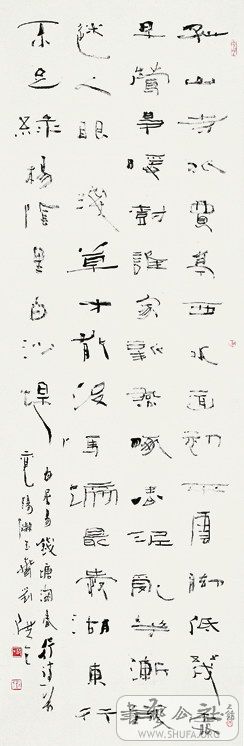 孤山寺北賈亭西水面初平雲腳低幾處
早鶯爭暖樹誰家新燕啄春泥亂花漸欲
迷人眼淺草才能沒馬蹄最愛湖東行
不足綠楊陰里白沙堤
白居易錢塘湖春行詩
書法公社
WWW.SHUFA.ORG